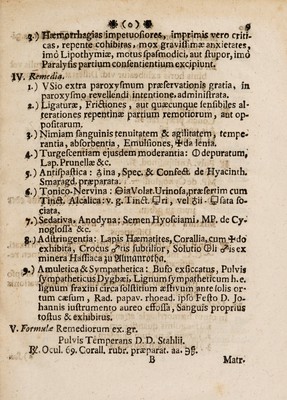 (o) 9
3.) Hæmorrhagias impetuosiores, imprimis vero criti-
cas, repente cohibitas, mox gravissimæ anxietates,
imò Lipothymiæ, motus spasmodici, aut stupor, imò
Paralysis partium consentientium excipiunt.
IV. Remedia.
1.) VSio extra paroxysmum præservationis gratia, in
paroxysmo revellendi intentione, administrata.
2.) Ligaturæ, Frictiones, aut quæcunque sensibiles al-
terationes repentinæ partium remotiorum, aut op-
positarum.
3.) Nimiam sanguinis tenuitatem & agilitatem, tempe-
rantia, absorbentia, Emulsiones, da lenia.
4.) Turgescentiam ejusdem moderantia: depuratum,
Lap. Prunellæ &c.
5.) Antispastica: ina, Spec. & Confect. de Hyacinth.
Smaragd. præparata.
6.) Tonico-Nervina: Volat. Urinosa, præsertim cum
Tinct. Alcalica: v. g. Tinct. ri, vel lata so-
ciata.
7.) Sedativa, Anodyna: Semen Hyosciami, MP. de Cy-
noglossa &c.
8.) Adstringentia: Lapis Hæmatites, Corallia, cum do
exhibita, Crocus ♂tis subtilior, Solutio li ♂is ex
minera Hassiaca zu
9.) Amuletica & Sympathetica: Bufo exsiccatus, Pulvis
sympatheticus Dygbæi, Lignum sympatheticum h. e.
lignum fraxini circa solstitium æstivum ante solis or-
tum cæsum, Rad. papav. rhoead. ipso Festo D. Jo-
hannis instrumento aureo effossa, Sanguis proprius
tostus & exhibitus.
V. Formulæ Remediorum ex. gr.
Pulvis Temperans D. D. Stahlii.
℞. Ocul. 69. Corall. rubr. præparat. aa. ʒß.
B Matr.